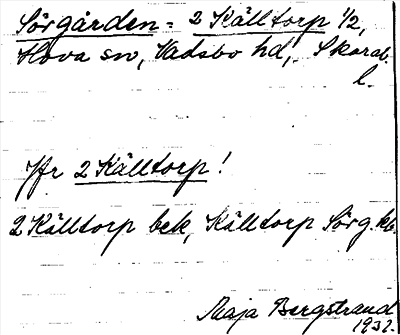 Sörgården = 2 Källtorp 1/2,
Hova sn, Vadsbo hd, Skarab.
l.
Jfr 2 Källtorp!
2 Källtorp bek, Källtorp Sörg. kb.
Maja Bergstrand
1932.